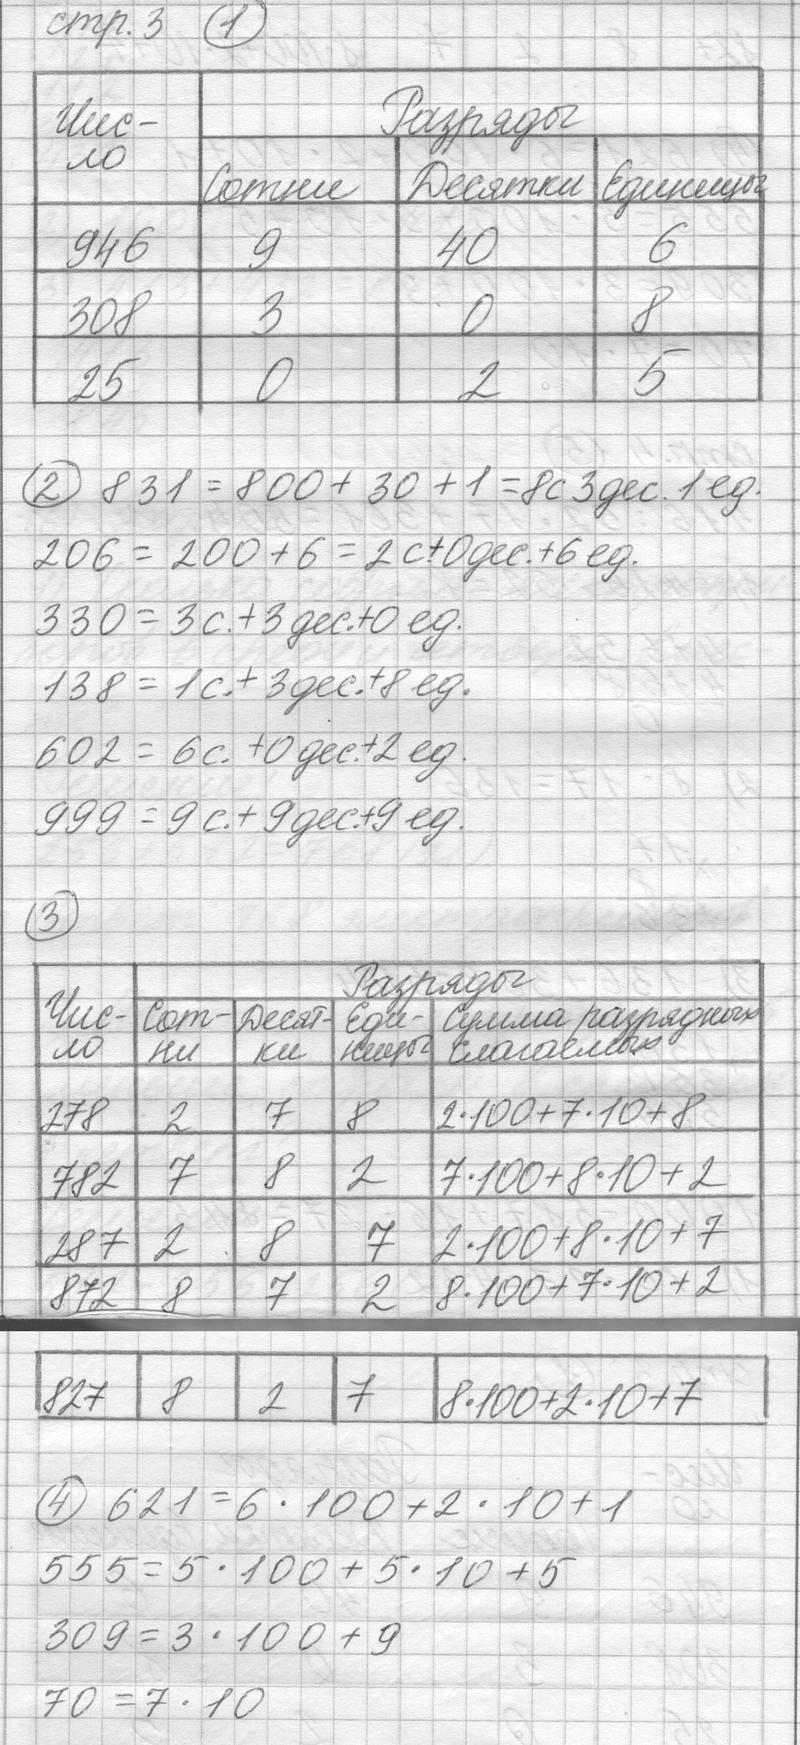 стр. 3 1
Чис- Разряды
ло Сотни Десятки Единицы
946 9 40 6
308 3 0 8
25 0 2 5
2 831 = 800 + 30 + 1 = 8с 3дес. 1 ед.
206 = 200 + 6 = 2 с+0дес.+6 ед.
330 = 3с.+3дес.+0 ед.
138 = 1с.+3дес.+8 ед.
602 = 6с.+0дес.+2 ед.
999 = 9с.+9дес.+9 ед.
3
Разряды
Чис- Сот- Десят- Еди- Сумма разрядных
ло ни ки ницы слагаемых
278 2 7 8 2·100+7·10+8
782 7 8 2 7·100+8·10+2
287 2 8 7 2·100+8·10+7
872 8 7 2 8·100+7·10+2
827 8 2 7 8·100+2·10+7
4 621=6·100+2·10+1
555=5·100+5·10+5
309=3·100+9
70=7·10